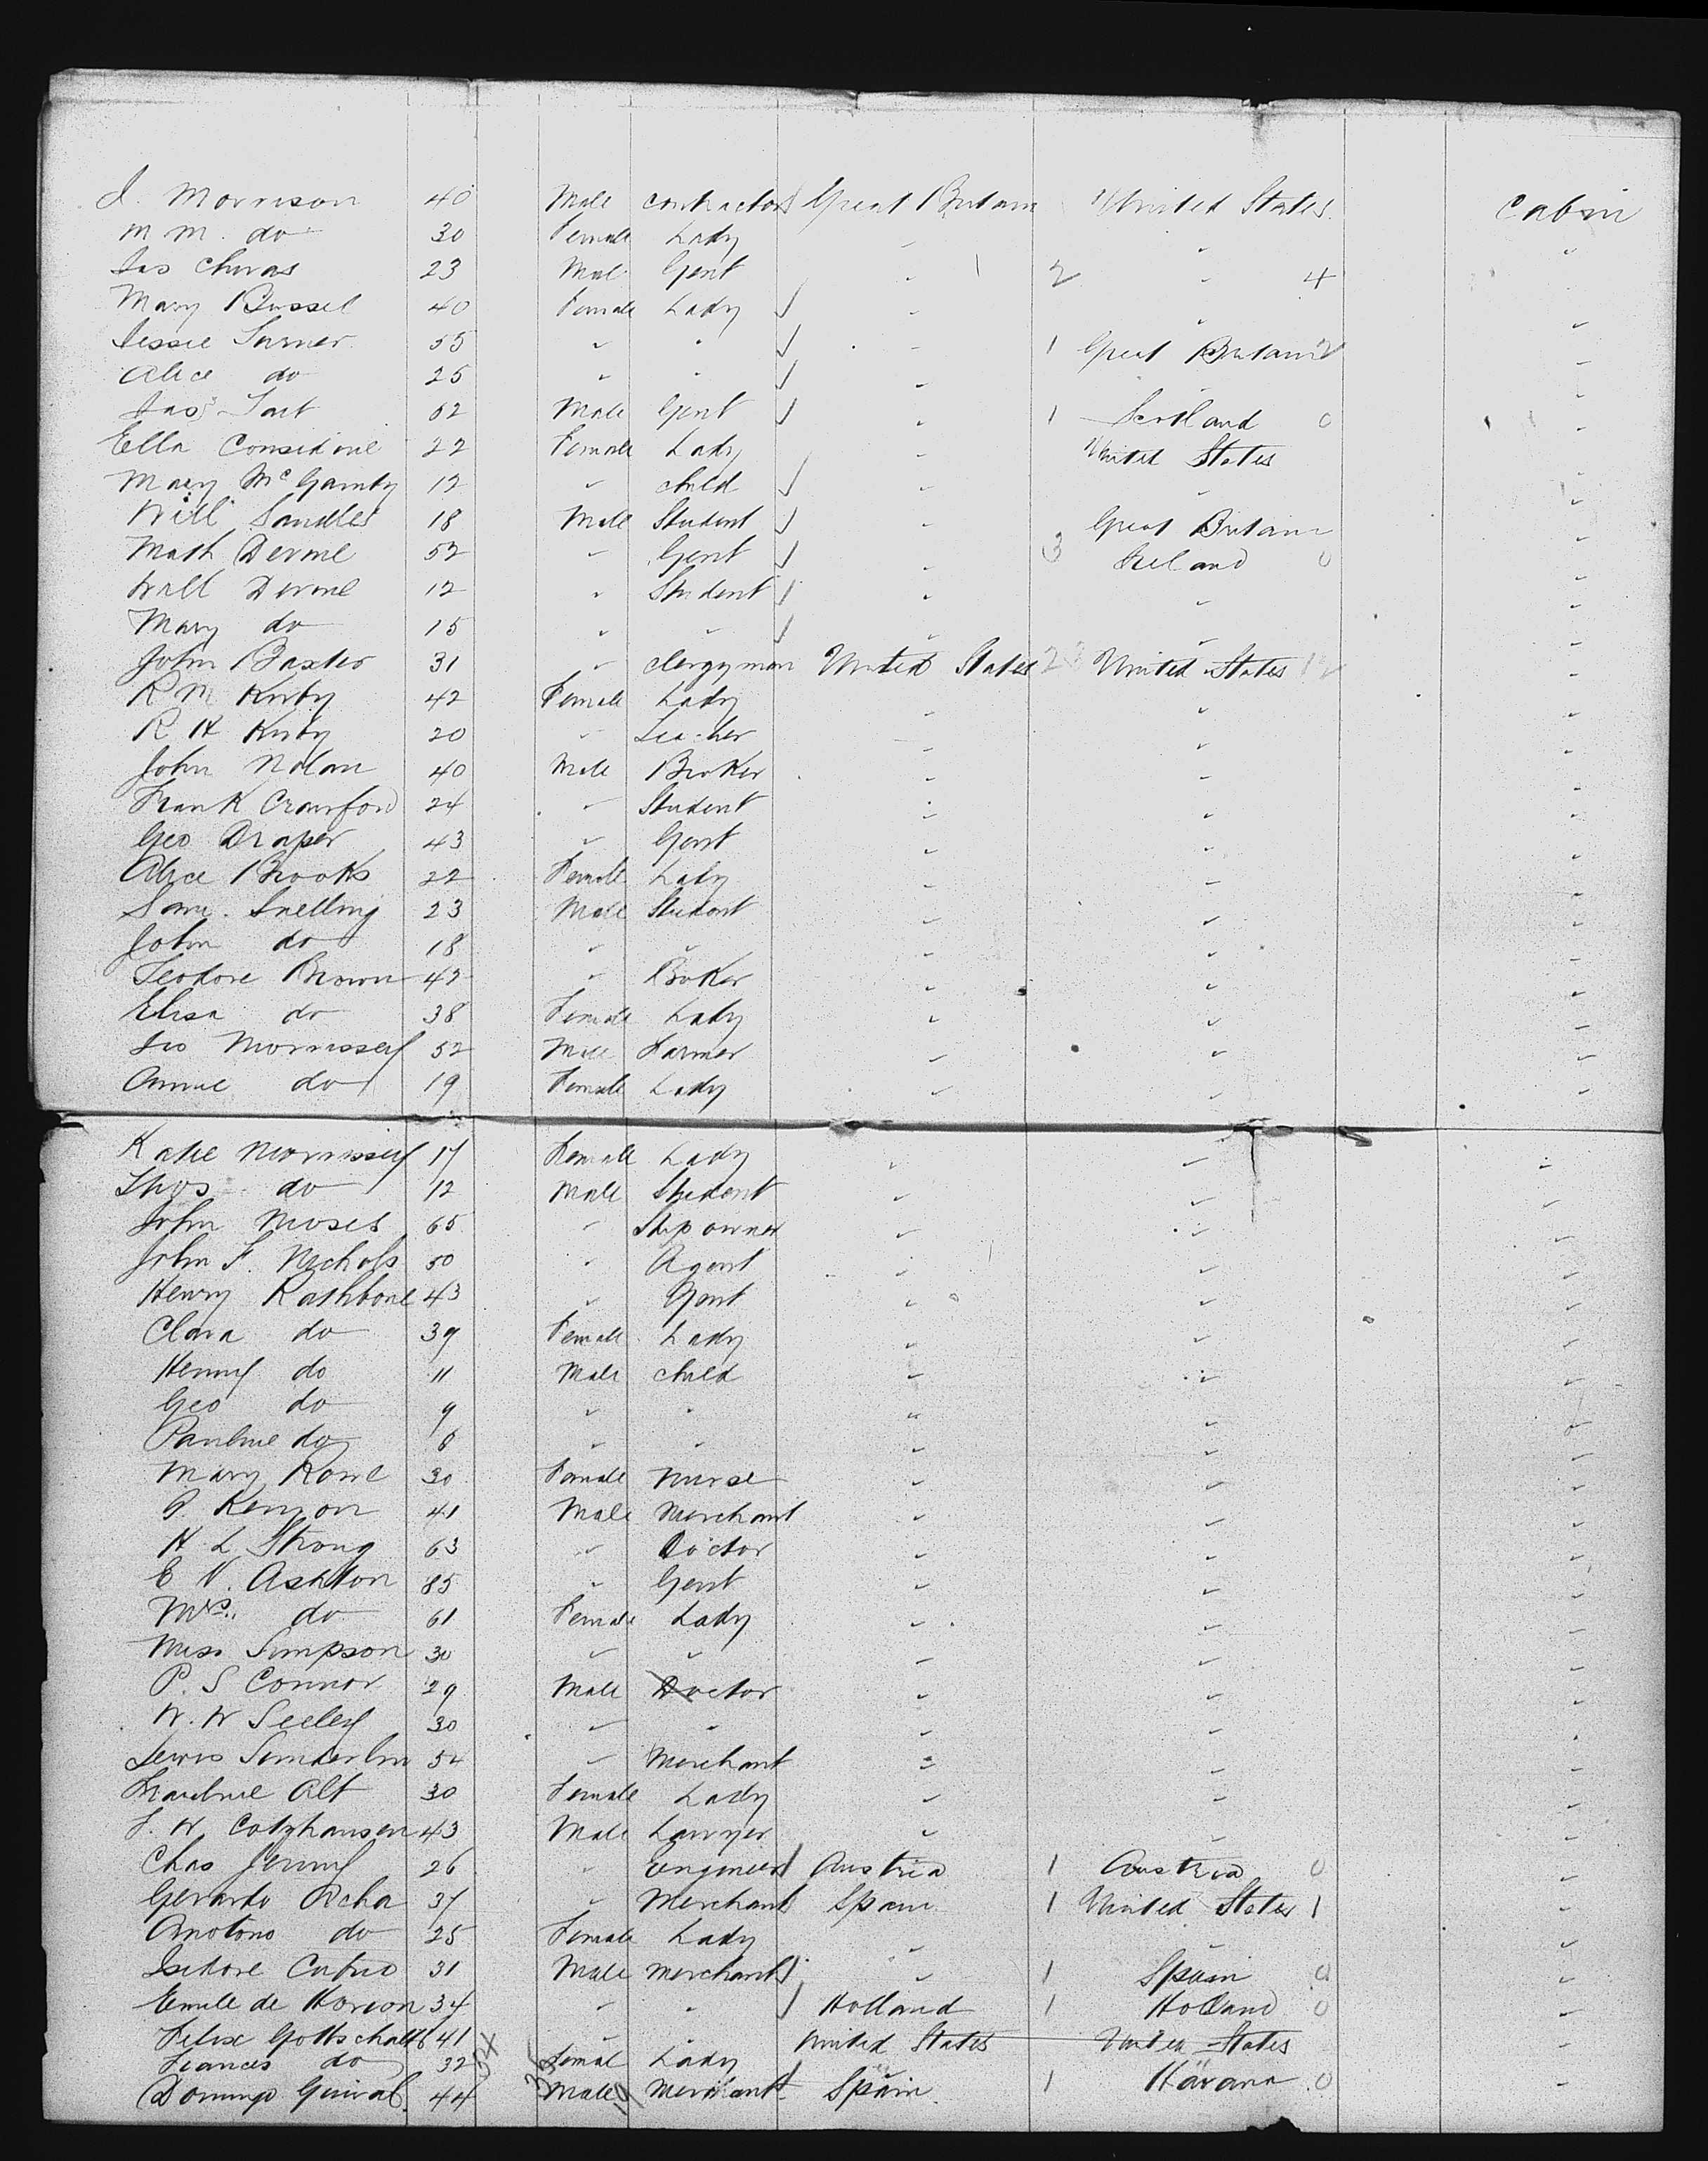 J. Morrison 40 Male contractor Great Britain United States Cabin
M M. do 30 Female Lady
Jas Chivas 23 Male Gent 2 4
Mary Russel 40 Female Lady
Jessie Turner 55 1 Great Britain 2
Alice do 25
Jas Tait 62 Male Gent 1 Scotland 0
Ella Considine 22 Female Lady United States
Mary McGamty 12 child
Will Sandles 18 Male Student Great Britain
Math Devine 52 Gent 3 Ireland 0
Will Devine 12 Student
Mary do 15
John Baxter 31 clergyman United States United States
R M Kirby 42 Female Lady
R H Kirby 20 Teacher
John Nolan 40 Male Broker
Frank Crawford 24 Student
Geo Draper 43 Gent
Alice Brooks 22 Female Lady
Sam. Snelling 23 Male Student
John do 18
Teodore Brown 42 Broker
Elisa do 38 Female Lady
Jas Morrissey 52 Male Farmer
Annie do 19 Female Lady
Katie Morrissey 17 Female Lady
Thos do 12 Male Student
John Moses 65 Ship owner
John F. Nichols 50 Agent
Henry Rathbone 43 Gent
Clara do 39 Female Lady
Henry do 11 Male child
Geo do 9
Pauline do 6
Mary Rowe 30 Female Nurse
Kenyon 41 Male Merchant
H L Strong 63 Doctor
E V. Ashton 85 Gent
Mrs. do 61 Female Lady
Miss Simpson 30
P. S Connor 29 Male Doctor
W. W Seeley 30
Lewis Sunderlin 54 Merchant
Alt 30 Female Lady
F. W Cotzhausen 43 Male Lawyer
Chas Jenny 26 Engineer Austria 1 Austria 0
Gerardo Ocha 37 Merchant Spain 1 United States 1
Anotono do 25 Female Lady
Isidore 31 Male Merchant 1 Spain 0
Emile de 34 Holland 1 Holland 0
Felix Gottschalk 41 United States United States
Frances do 32 Female Lady
Domingo 44 Male Merchant Spain 1 Havana 0